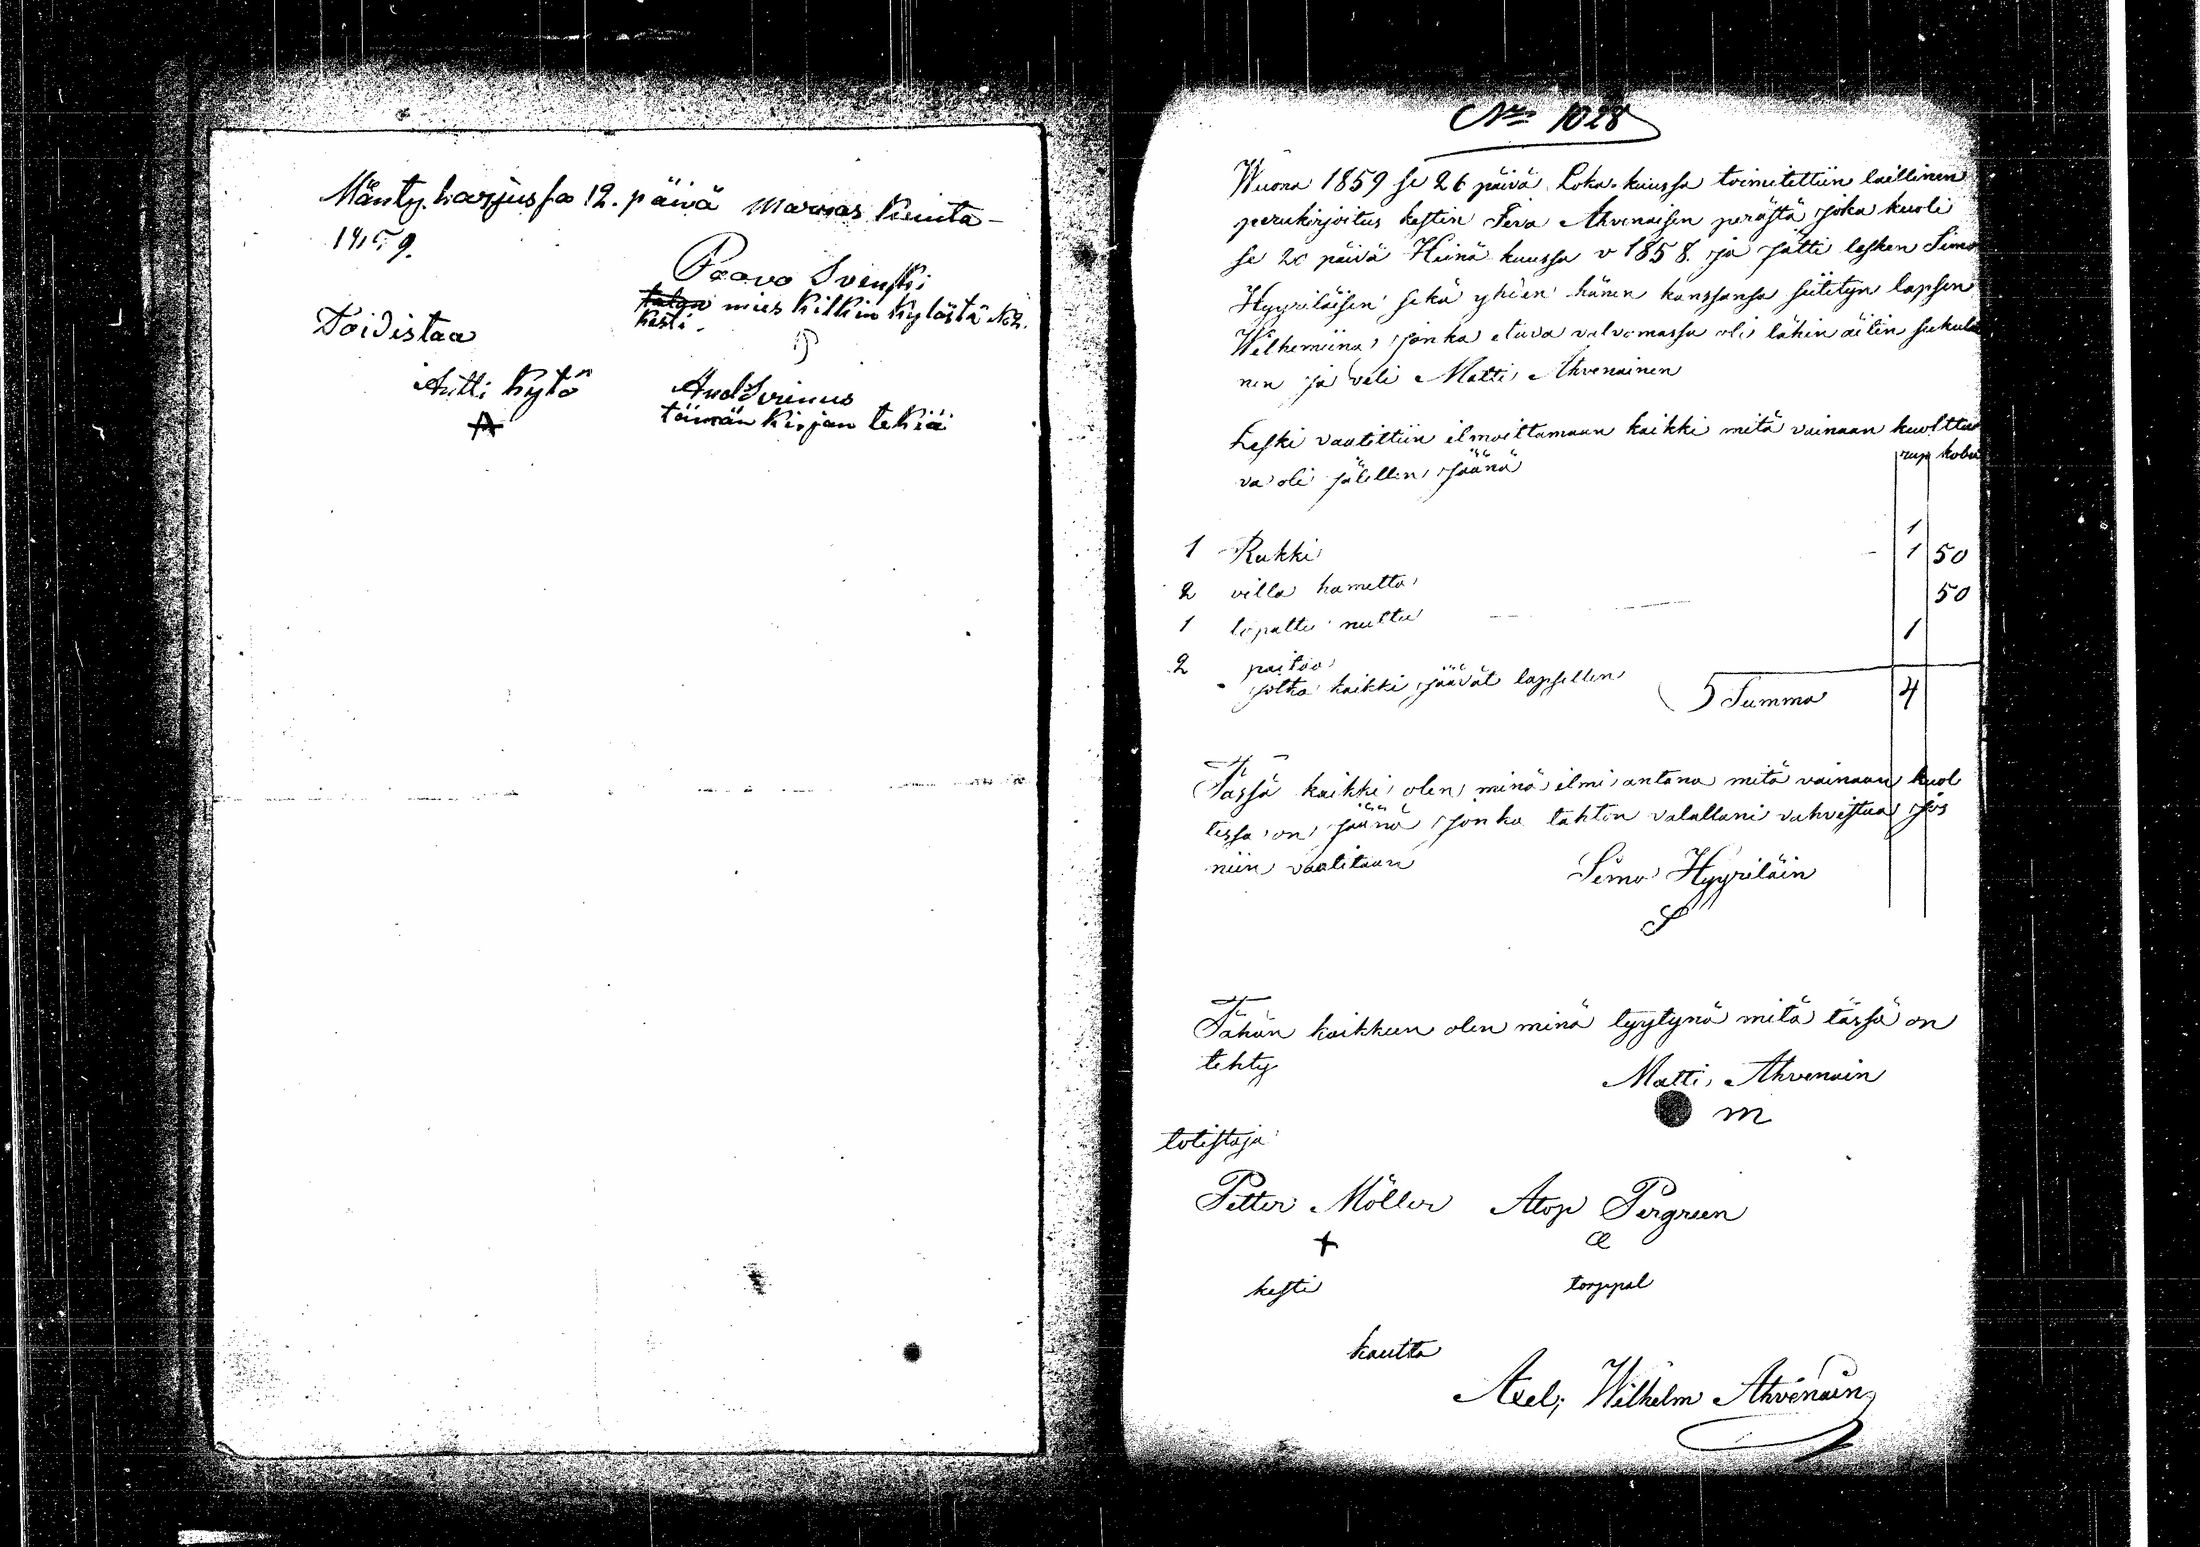 Mänty-harjussa 12. päivä marras kuuta
1859.
Paavo Svenski
talon mies Kilkin Kylästä No 2.
Kesti.
Toidistaa
Antti Kytö
And Sirenus
tämän kirjan tekiä
No 1028
Wuona 1859 se 26 päivä Loka-kuussa toimitettiin laillinen
perukirjoitus kestin Feva Ahvenaisen perästä joka kuoli
se 20 päivä Heinä kuussa v 1858. ja jätti lesken Simo
Hyyriläisen sekä yhden hänen kanssansa siitetyn lapsen
Wilhemiina, jonka etuva valvomassa oli lähin äitin sukulai
nen ja veli Matti Ahvenainen
Leski vaatittiin ilmoittamaan kaikki mitä vainaan kuolttua
va oli jälellen jäänä
rup kobe
1
1 Rukki 1 50
2 villa hametta 50
1 lopattu nuttu 1
2 paitaa
jotka kaikki jäävät lapsellen
5 Summa 4
Tässä kaikki olen minä ilmi antana mitä vainaan kuol
tessa on jäänä jonka tahton valallani vahvistaa jos
niin vaatitaan
Simo Hyyriläin
S
Tähän kaikkeen olen minä tyytynä mitä tässä on
tehty
Matti Ahvenain
m
totistaja
Petter Möller Atop Pergreen
kesti torppal
kautta
Axel, Wilhelm Ahvenain